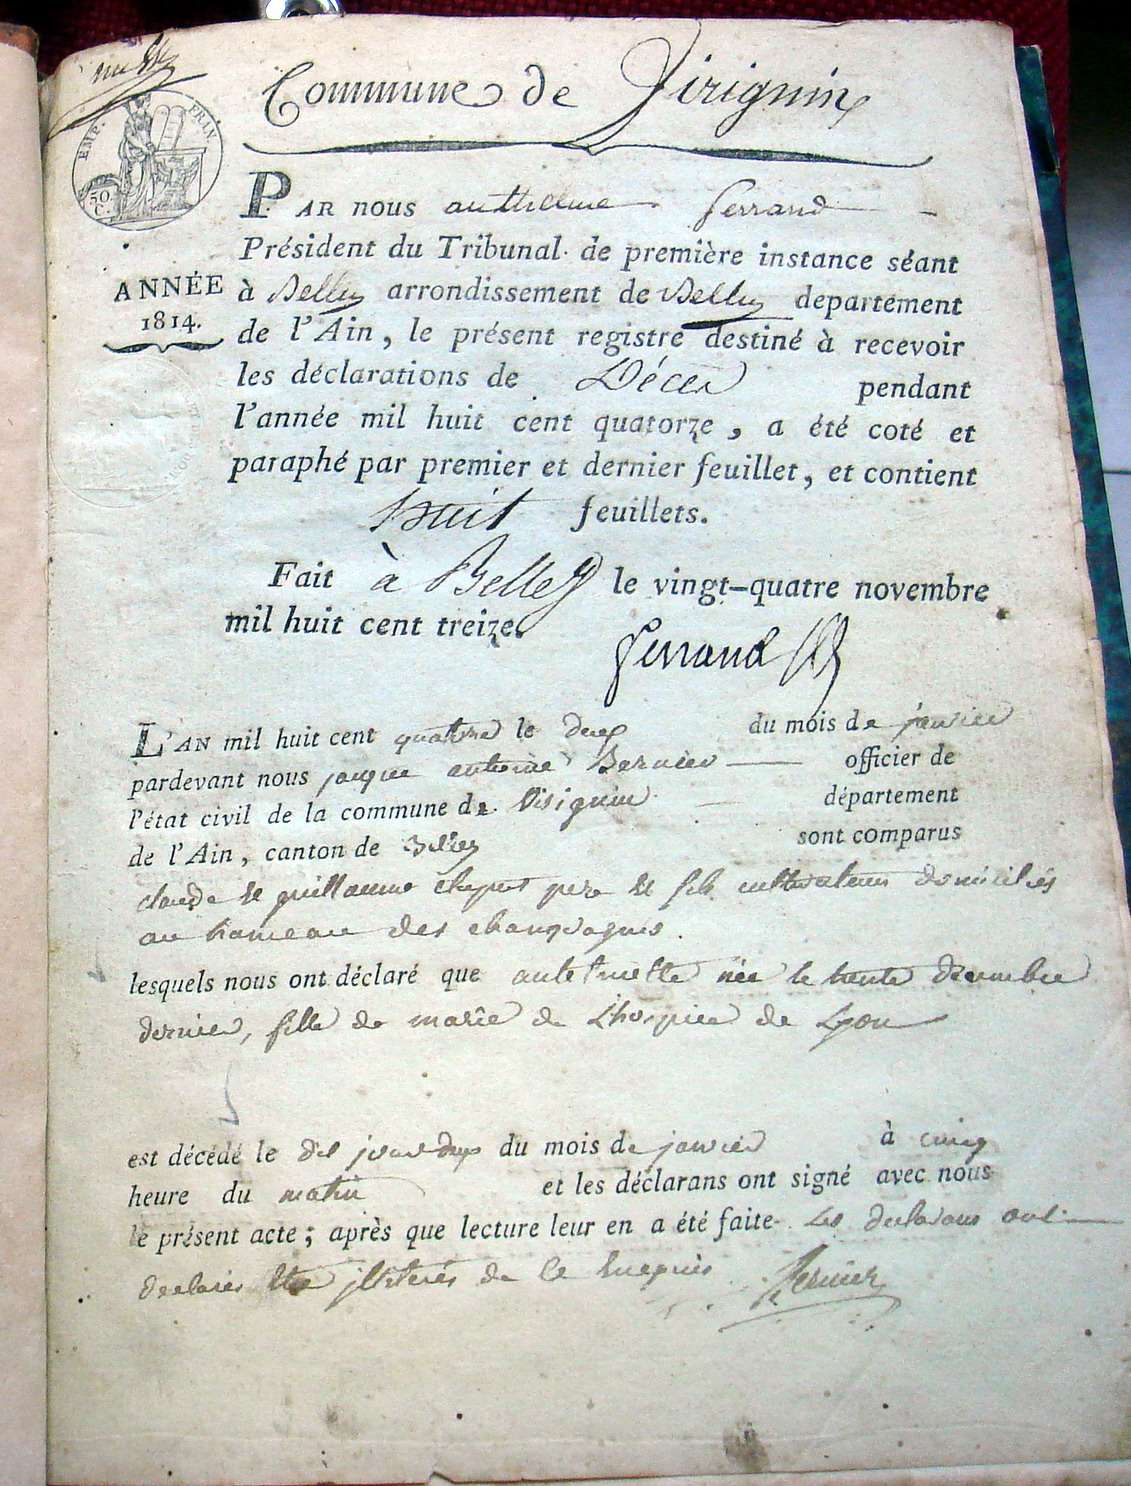 Commune de Virignin
EMP. FRAN.
50 C.
PAR nous anthelme ferrand
Président du Tribunal de première instance séant
ANNÉE
1814.
à Belley arrondissement de Belley département
de l'Ain, le présent registre destiné à recevoir
les déclarations de Décès pendant
l'année mil huit cent quatorze, a été coté et
paraphé par premier et dernier feuillet, et contient
huit feuillets.
Fait à Belley le vingt-quatre novembre
mil huit cent treize.
ferrand
L'AN mil huit cent quatorze le deux du mois de janvier
pardevant nous jacques antoine Bernier officier de
l'état civil de la commune de Virignin département
de l'Ain, canton de Belley sont comparus
claude et guillaume père et fils cultivateurs domiciliés
au hameau des
lesquels nous ont déclaré que antelmette née le trente décembre
dernier, fille de marie de L'hospice de Lyon
est décédé le dit jour deux du mois de janvier à cinq
heure du matin et les déclarans ont signé avec nous
le présent acte; après que lecture leur en a été faite Les declarans ont
declarés etre illiterés de ce enquis Bernier